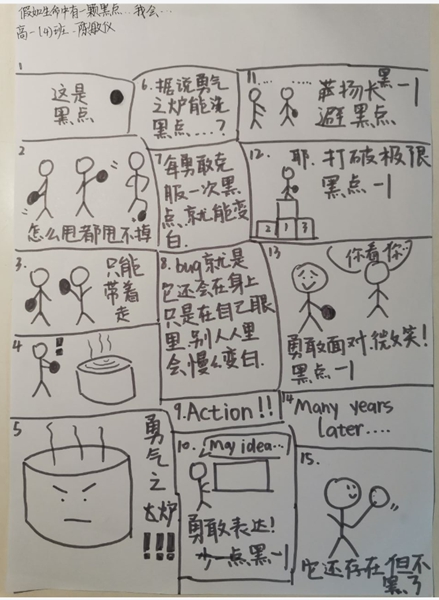 假如生命中有一颗黑点...我会...
高一(4)班.陈敏仪
1
这是
黑点
2
怎么甩都甩不掉
3.
只能
带着
走
4
!!
5
勇气之大炉
!!!
6.据说勇气
之炉能洗
黑点....?
7每勇敢克
服一次黑
点,就能变
白.
8.bug就是
它还会在身上
只是在自己眼
里.别人人里
会慢么变白.
9.Action!!
10.
May idea...
勇敢表达!
少一点黑-1
11.
扬长
避黑点
黑-1
12.
耶.打破极限
黑点-1
2 1 3
13
你看你..
勇敢面对.微笑!
黑点-1
14
Many years
later....
15.
它还存在但不
黑了